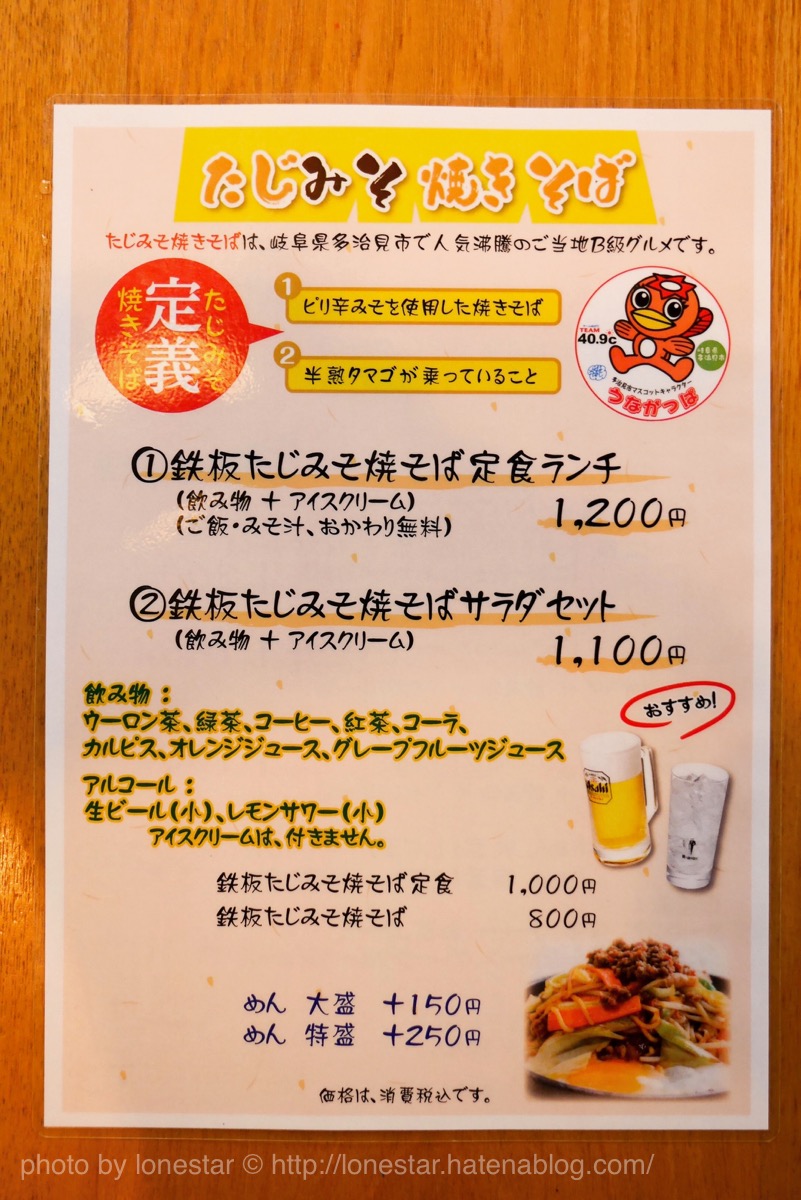 たじみそ焼きそば
たじみそ焼きそばは、岐阜県多治見市で人気沸騰のご当地B級グルメです。
たじみそ
焼きそば
定義
1 ピリ辛みそを使用した焼きそば
2 半熟タマゴが乗っていること
TEAM
40.9c
岐阜県
多治見市
多治見市マスコットキャラクター
うながっぱ
①鉄板たじみそ焼そば定食ランチ
(飲み物 + アイスクリーム)
(ご飯・みそ汁、おかわり無料)
1,200円
②鉄板たじみそ焼そばサラダセット
(飲み物 + アイスクリーム)
1,100円
飲み物：
ウーロン茶、緑茶、コーヒー、紅茶、コーラ、
カルピス、オレンジジュース、グレープフルーツジュース
おすすめ!
アルコール：
生ビール(小)、レモンサワー(小)
アイスクリームは、付きません。
Asahi
鉄板たじみそ焼そば定食 1,000円
鉄板たじみそ焼そば 800円
めん 大盛 +150円
めん 特盛 +250円
価格は、消費税込です。
photo by lonestar © http://lonestar.hatenablog.com/